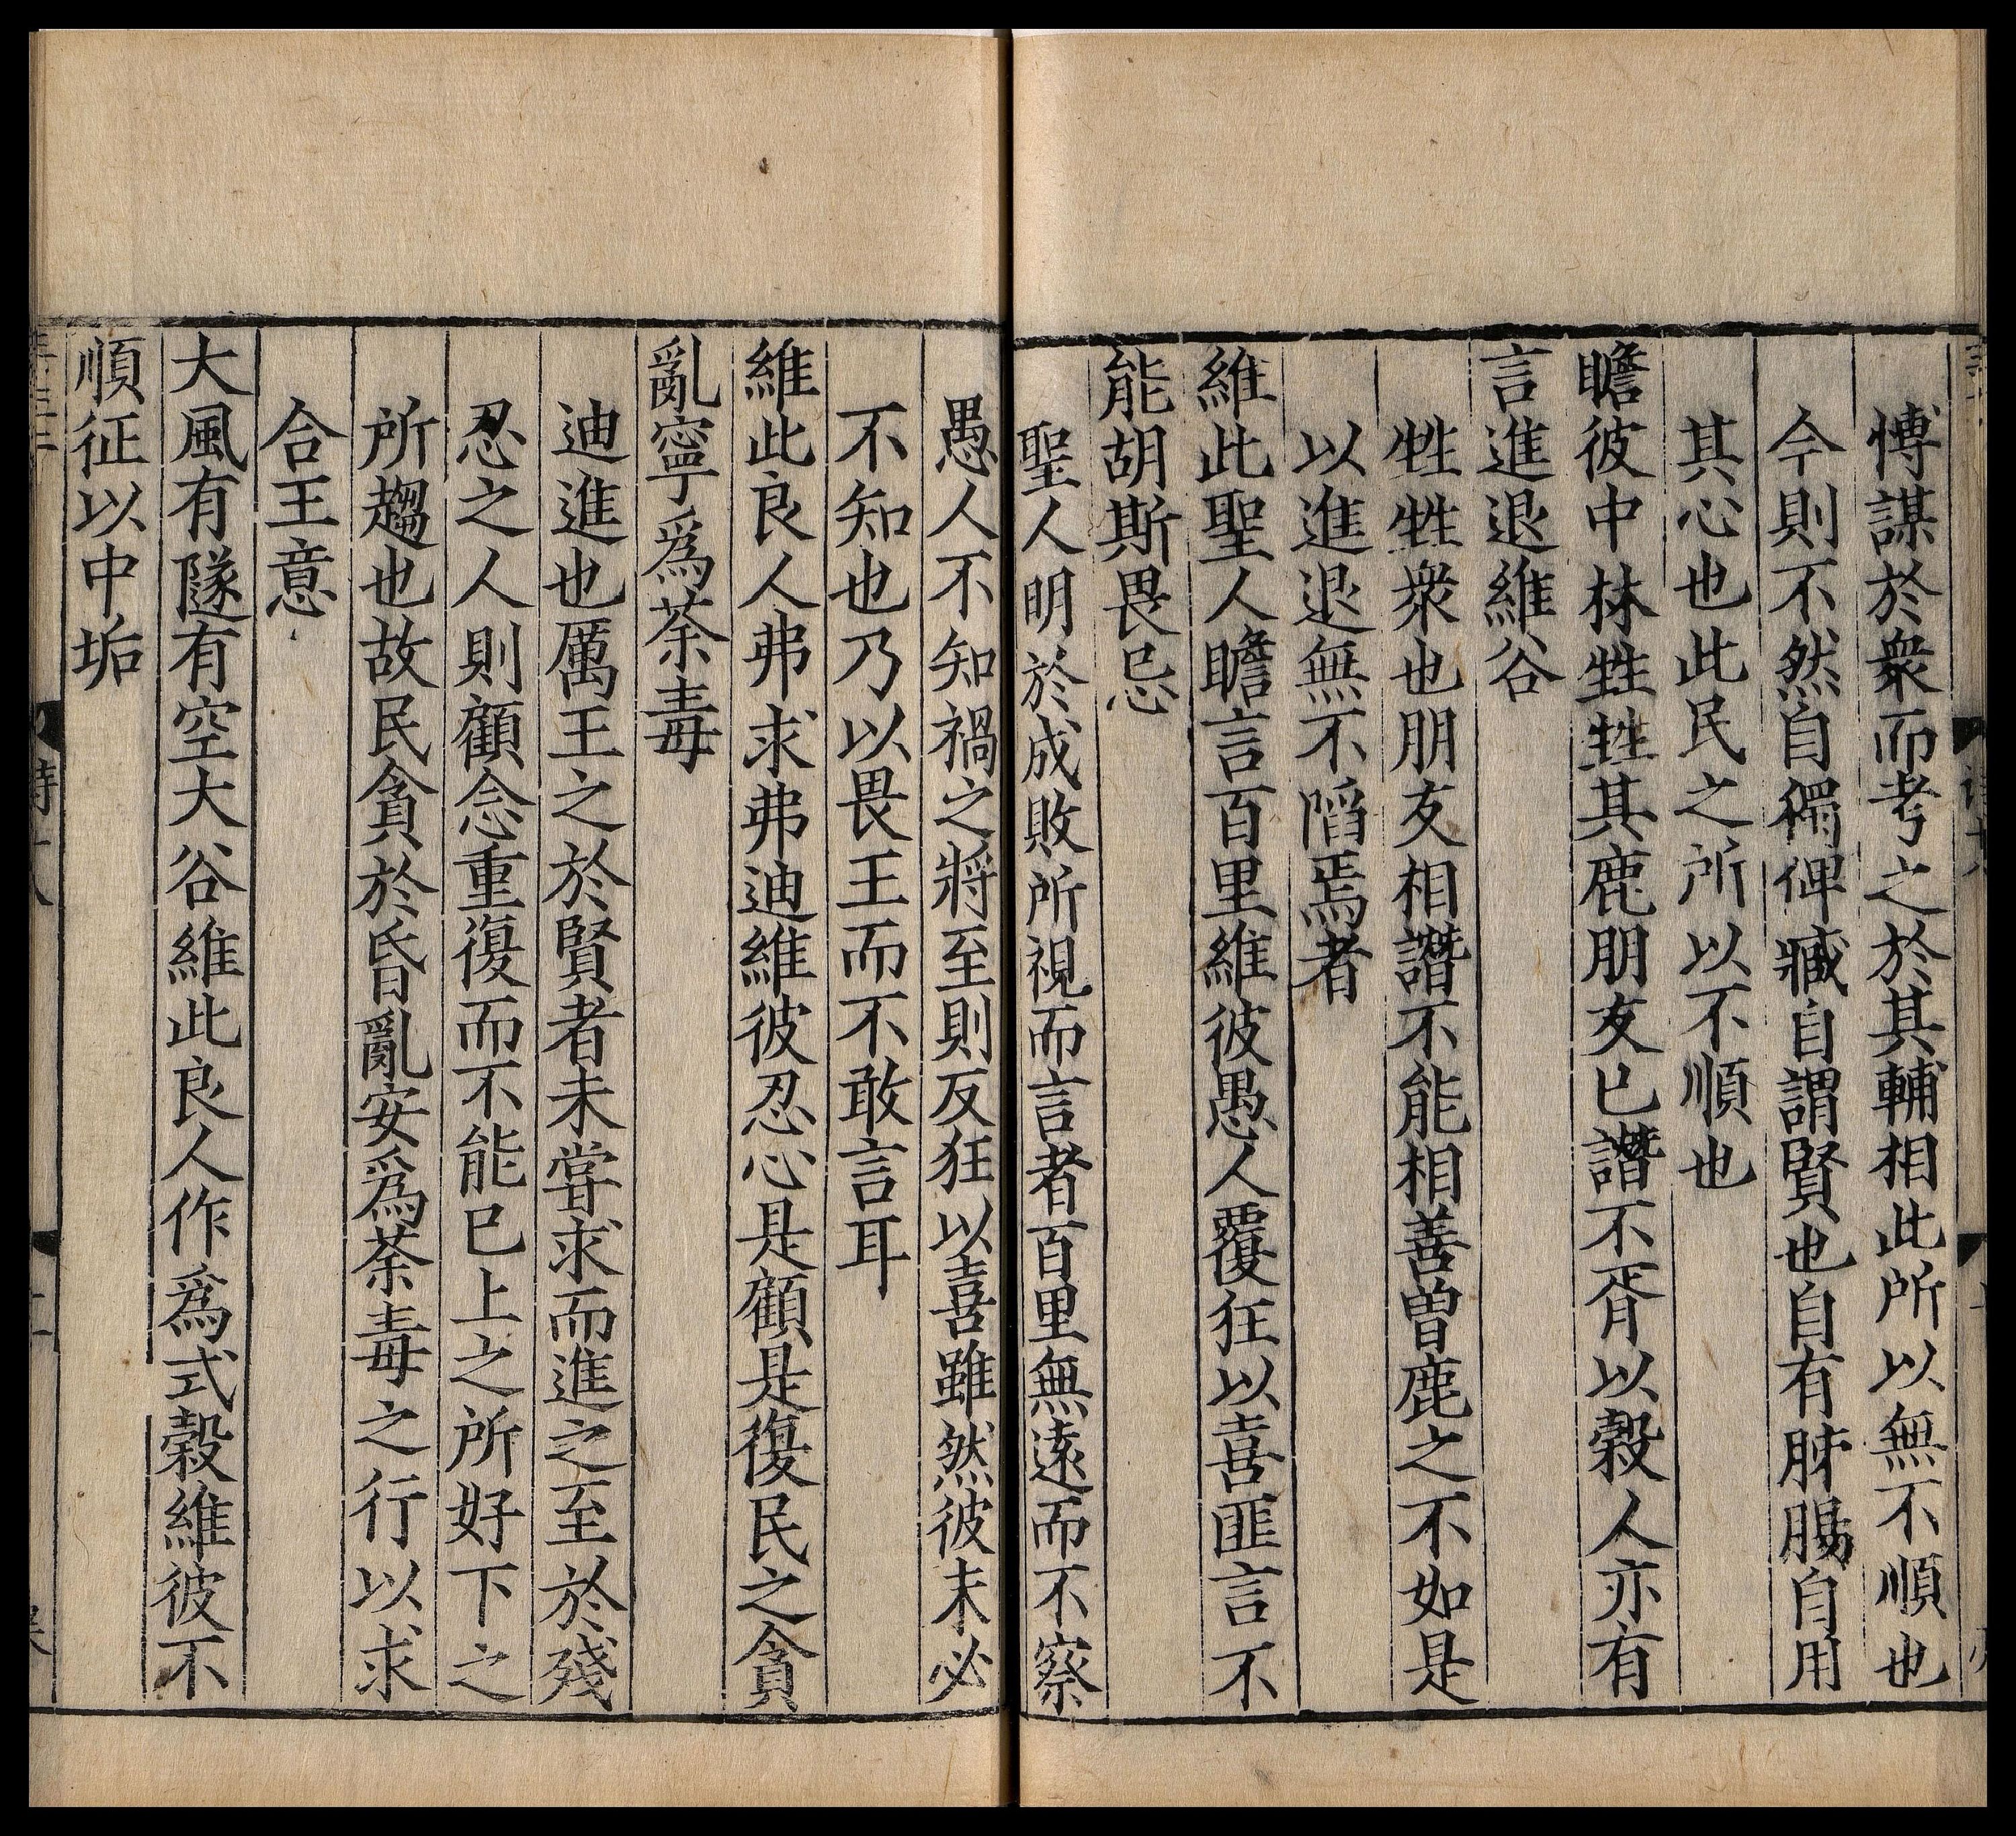 愽謀於衆而考之於其輔相此所以無不順也
今則不然自獨俾臧自謂賢也自有肺膓自用
其心也此民之所以不順也
瞻彼中林甡甡其鹿朋友已譖不胥以穀人亦有
言進退維谷
甡甡衆也朋友相譖不能相善曾鹿之不如是
以進退無不陷焉者
維此聖人瞻言百里維彼愚人覆狂以喜匪言不
能胡斯畏忌
聖人明於成敗所視而言者百里無遠而不察
愚人不知禍之將至則反狂以喜雖然彼未必
不知也乃以畏王而不敢言耳
維此良人弗求弗迪維彼忍心是顧是復民之貪
亂寧爲荼毒
迪進也厲王之於賢者未甞求而進之至於殘
忍之人則顧念重復而不能已上之所好下之
所趨也故民貪於昏亂安爲荼毒之行以求
合王意
大風有隧有空大谷維此良人作爲式榖維彼不
順征以中垢
詩十八